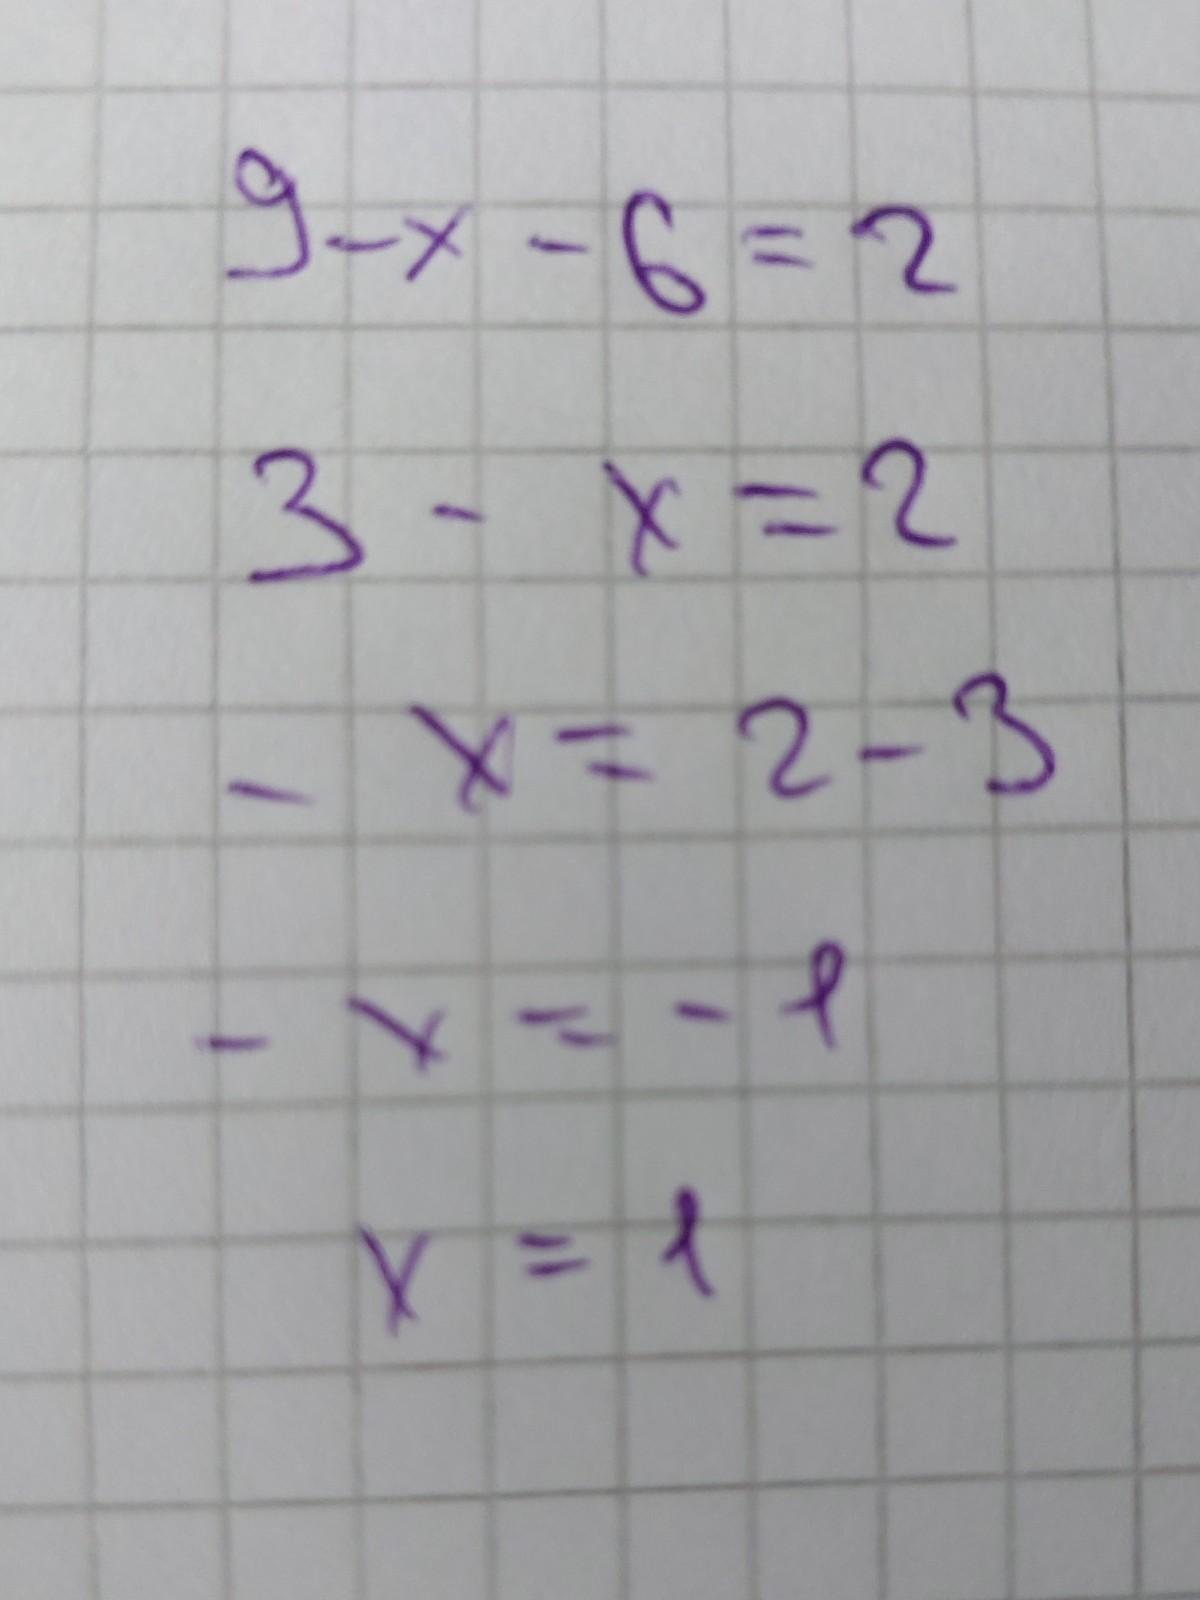 9 - x - 6 = 2
3 - x = 2
- x = 2 - 3
- x = - 1
x = 1